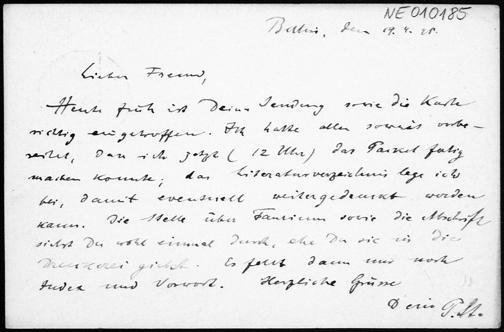 NE 010185
Berlin, den 19. 4. 25.
Lieber Freund,
Heute früh ist Deine Sendung sowie die Karte
richtig eingetroffen. Ich hatte alles soweit vorbe-
reitet, dass ich jetzt (12 Uhr) das Packet fertig
machen konnte; das Literaturverzeichnis lege ich
bei, damit eventuell weitergedruckt werden
kann. Die Stelle über sowie die Abschrift
siehst Du wohl einmal durch, ehe Du sie in die
Druckerei giebst. Es fehlt dann nur noch
Index und Vorwort. Herzliche Grüsse
Dein P. St.